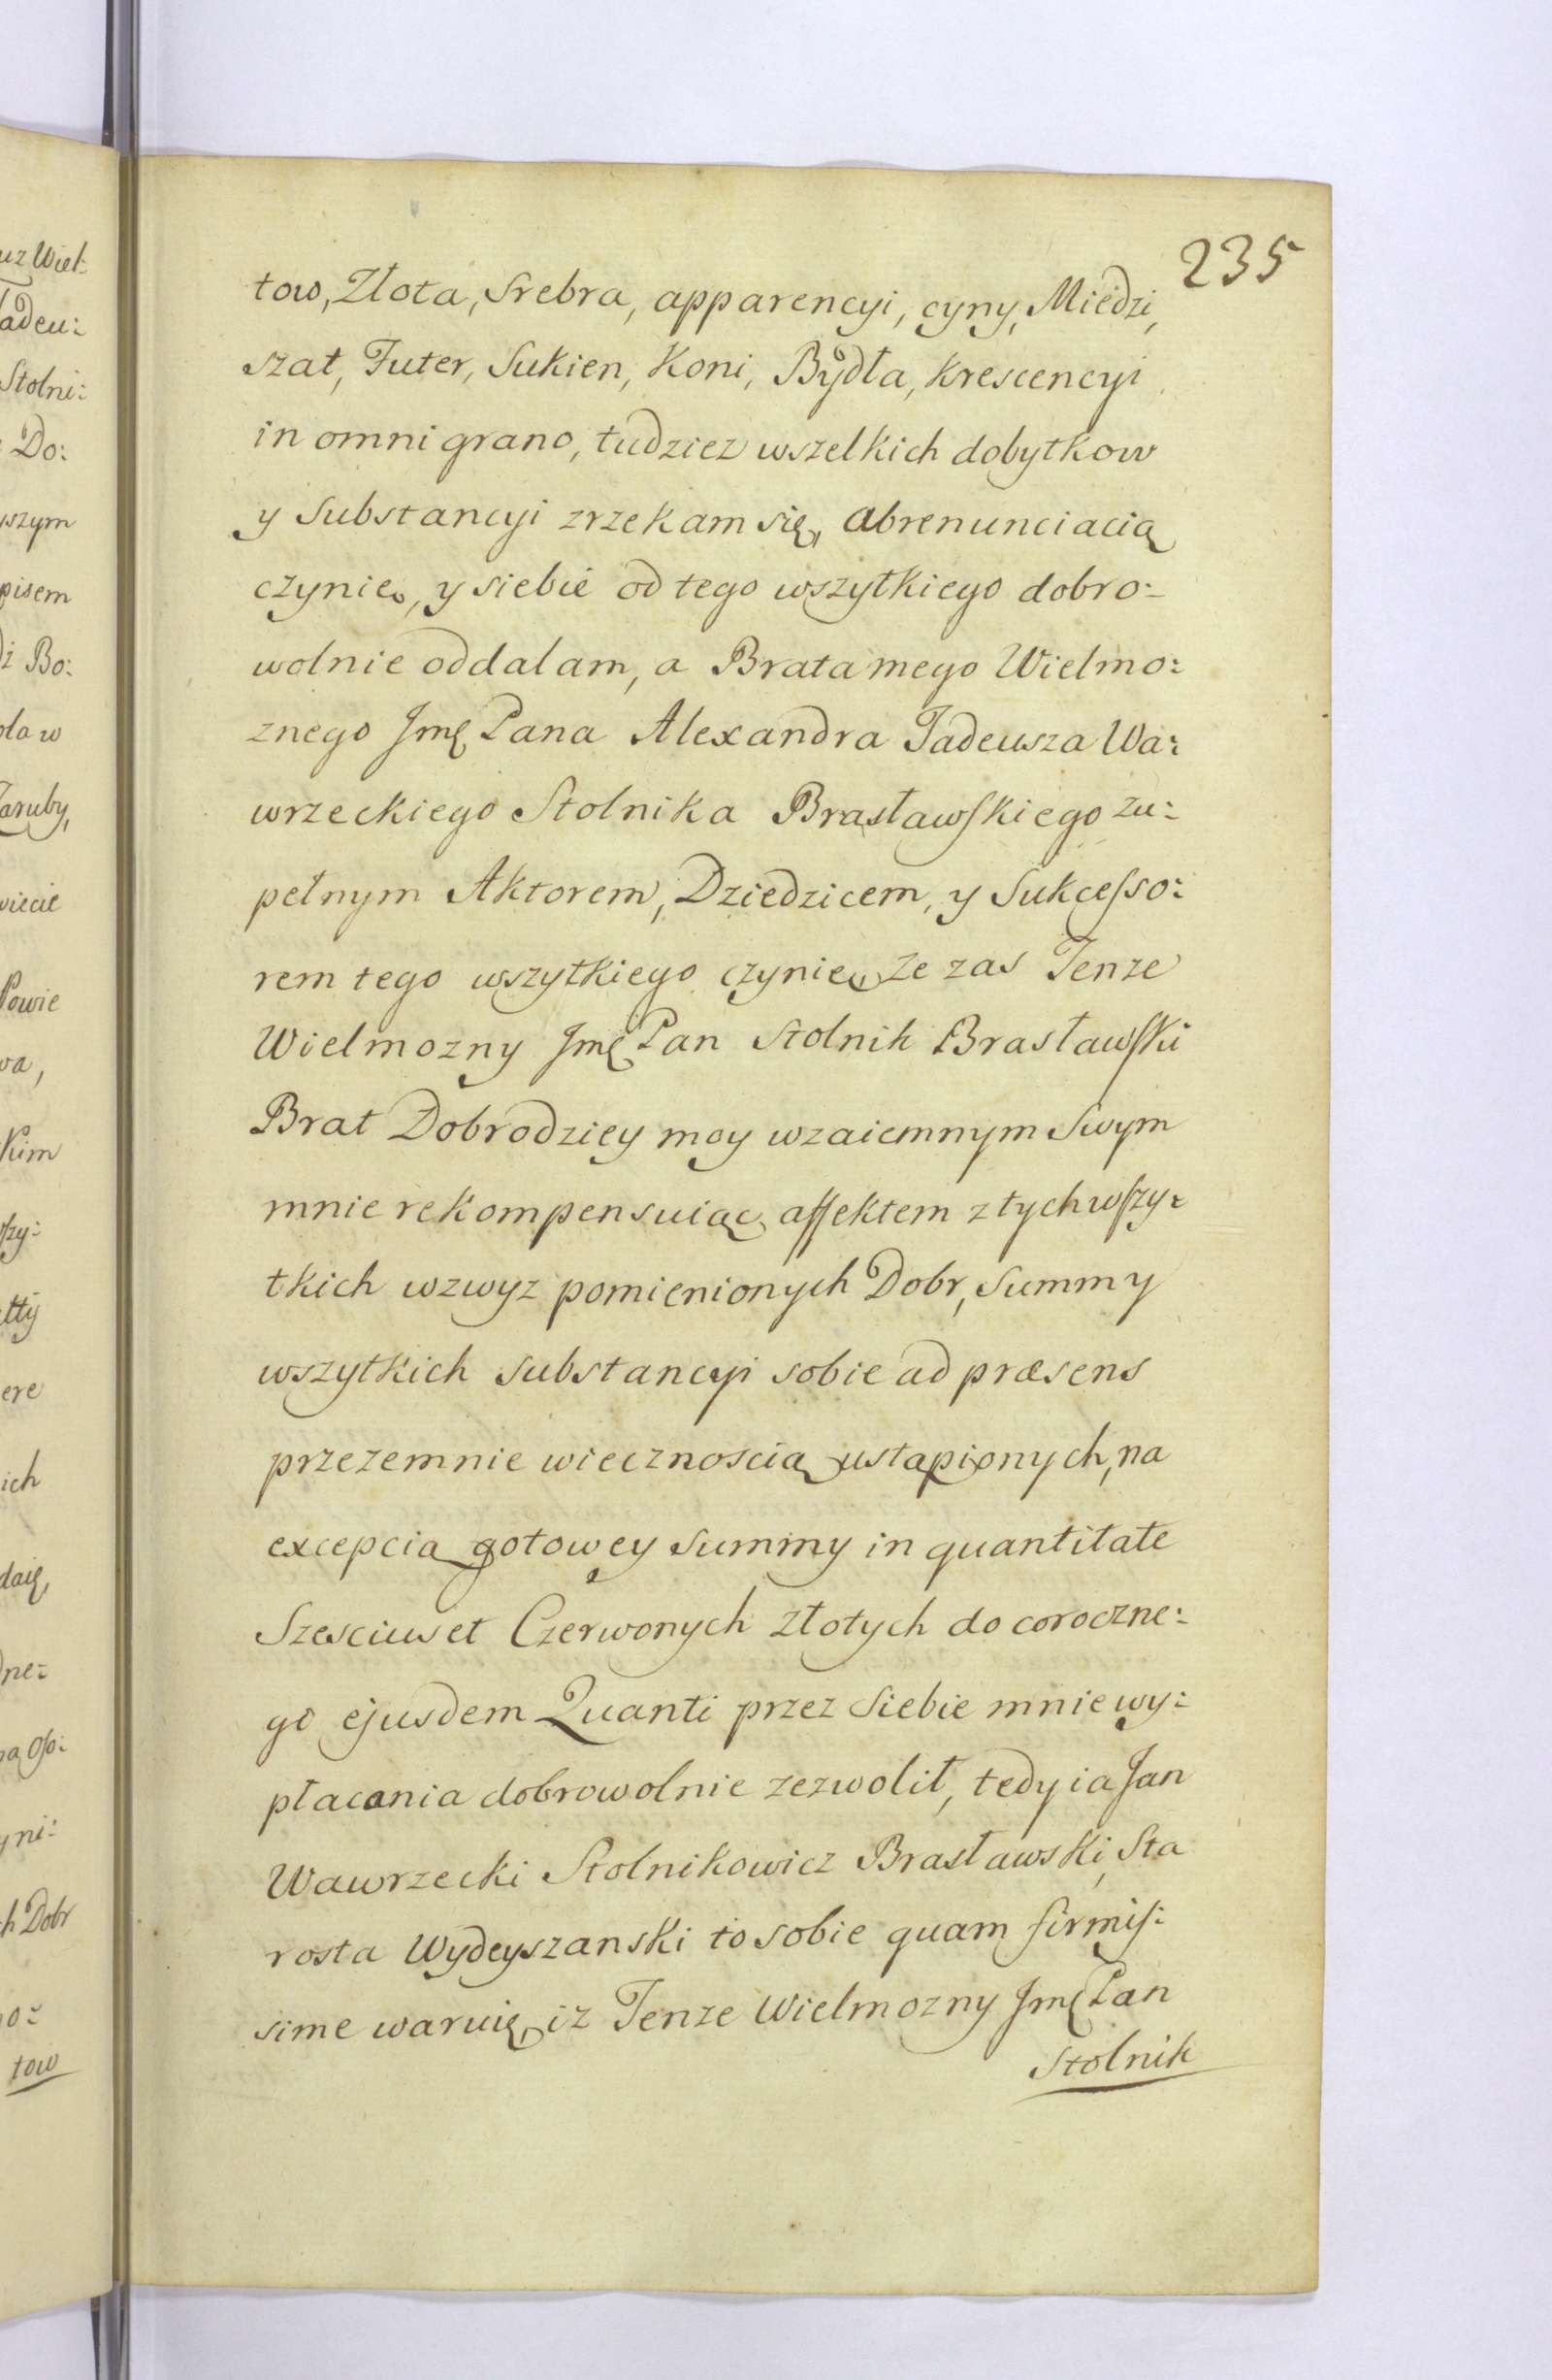 235
tow, Złota, Srebra, apparencyi, cyny, Miedzi,
szat, Futer, Sukien, Koni, Bydła, krescencyi
in omni grano, tudziez wszelkich dobytkow
y Substancyi zrzekam się, abrenunciacią
czynię, y siebie od tego wszytkiego dobro:
wolnie oddalam, a Brata mego Wielmo:
znego Jmę Pana Alexandra Tadeusza Wa:
wrzeckiego Stolnika Brasławskiego zu:
pełnym Aktorem, Dziedzicem, y Sukcesso:
rem tego wszytkiego czynię, Ze zas Tenze
Wielmozny Jmę Pan Stolnik Brasławski
Brat Dobrodziey moy wzaiemnym Swym
mnie rekompensuiąc affektem z tych wszy:
tkich wzwyz pomienionych Dobr, Summ y
wszytkich Substancyi sobie ad præsens
przezemnie wiecznoscią ustąpionych, na
excepcią gotowey Summy in quantitate
Szesciuset Czerwonych złotych do coroczne:
go ejusdem Quanti przez Siebie mnie wy:
płacania dobrowolnie zezwolił, tedy ia Jan
Wawrzecki Stolnikowicz Brasławski, Sta
rosta Wydeyszanski to sobie quam firmis:
sime waruię, iz Tenze Wielmozny Jmę Pan
Stolnik
uz Wiel:
Tadeu:
Stolni:
Do:
wszym
pisem
di Bo:
ola w
Zaruby,
wiecie
Powie
wa,
kim
szy:
etty
ere
ich
daię,
dne:
na oso:
yni:
h Dobr
no:
tow